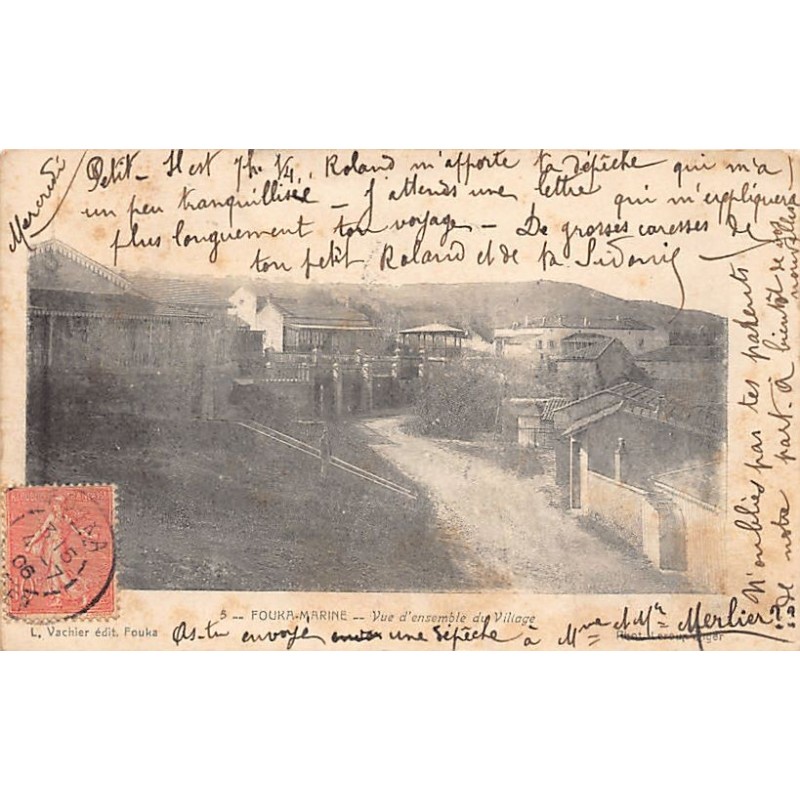 Mercredi
Petit - Il est 7h. 1/4, Roland m'apporte ta dépêche qui m'a
un peu tranquillisée - J'attends une lettre qui m'expliquera
plus longuement ton voyage - De grosses caresses de
ton petit Roland et de ta Sidonie
N'oublies pas tes parents
de notre part. à bientôt de
nouvelles
5 -- FOUKA-MARINE -- Vue d'ensemble du Village
L. Vachier édit. Fouka
Phot. Leroux, Alger
As-tu envoyé une dépêche à Mme et Mr Merlier??